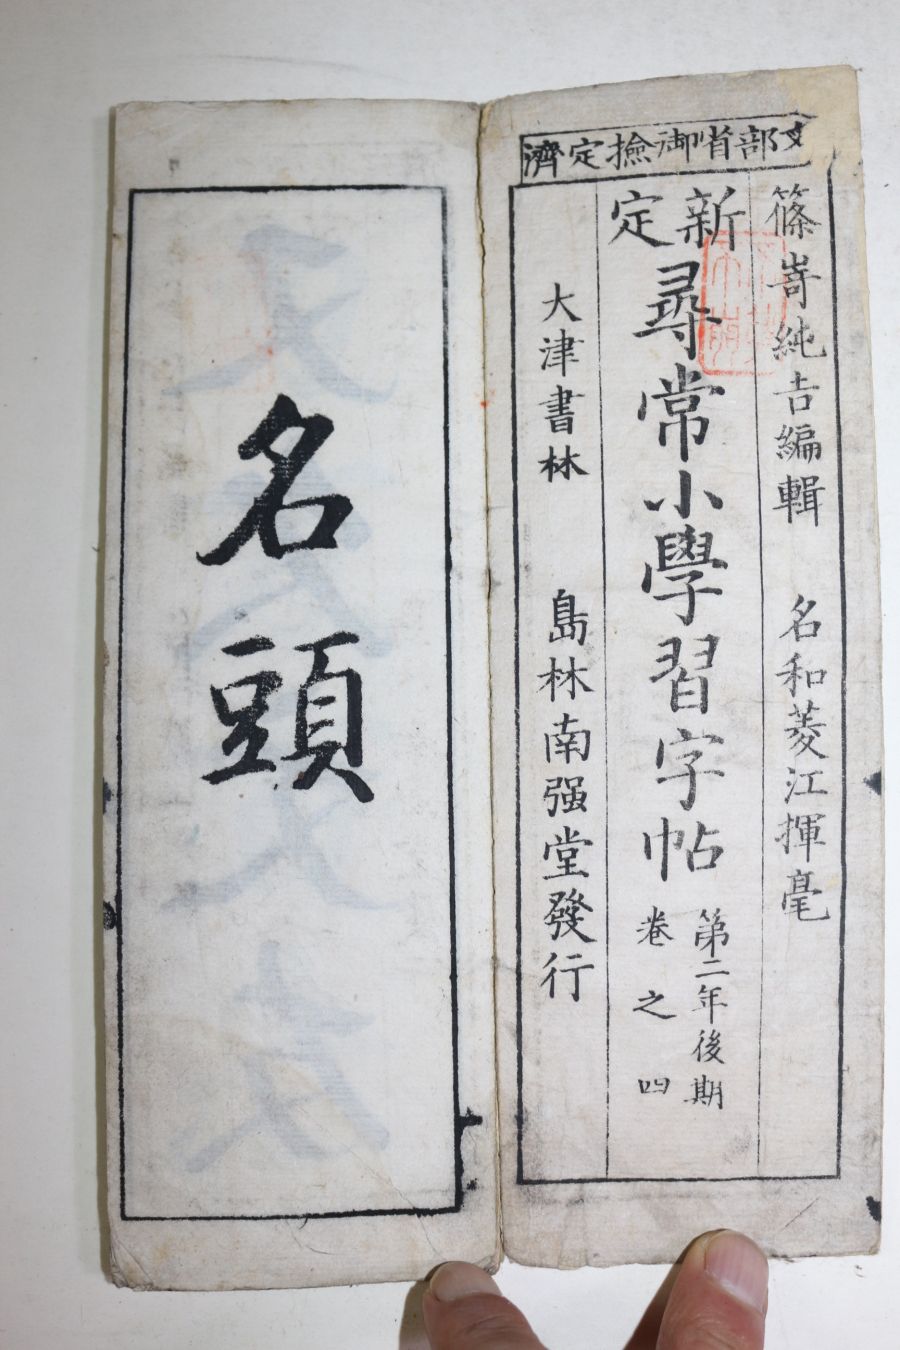 文部省御撿定濟
篠嵜純吉編輯 名和菱江揮毫
新定 尋常小學習字帖 第二年後期 卷之四
大津書林 島林南强堂發行
名頭